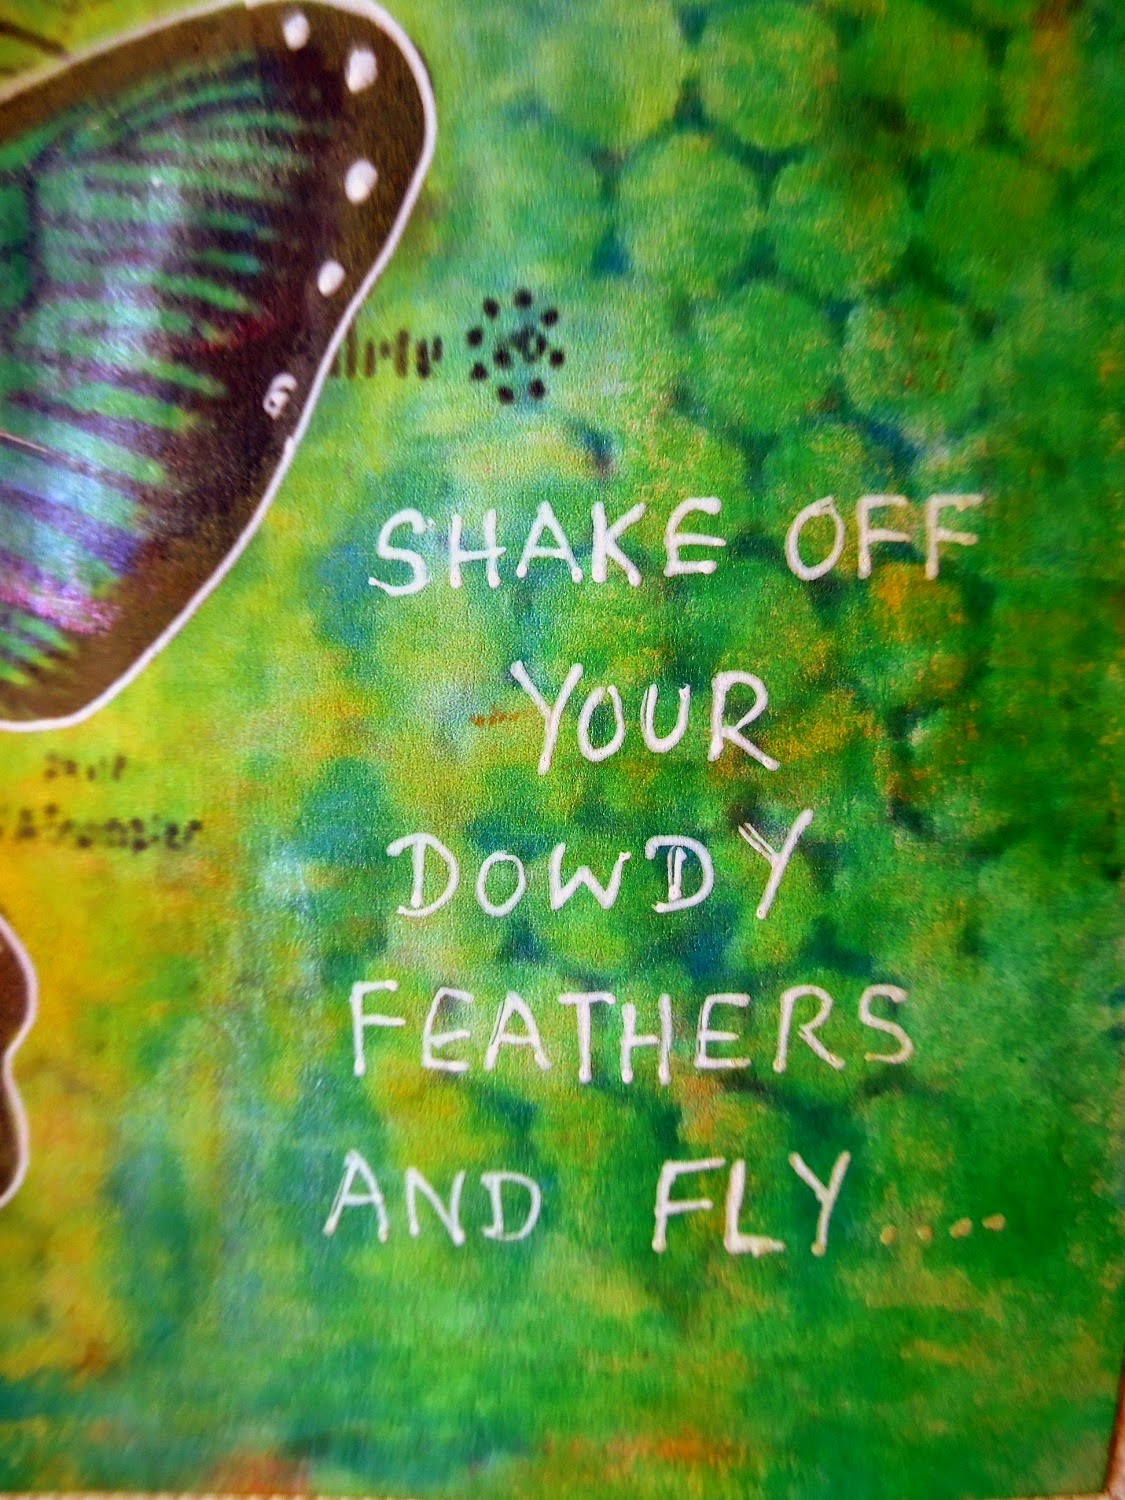 SHAKE OFF
YOUR
DOWDY
FEATHERS
AND FLY.....